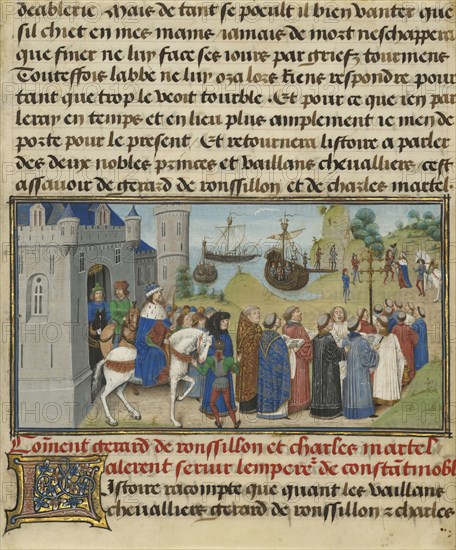 deablerie. Mais de tant se poeult il bien vanter que
sil chiet en mes mains iamais de mort neschappera
que finer ne luy face ses iours par griefz tourmens
Touteffois labbe ne luy oza lors riens respondre pour
tant que trop le veoit tourble. Et pour ce que ien par
leray en temps et en lieu plus amplement ie men de
porte pour le present. Et retournera listoire a parler
des deux nobles princes et vaillans chevalliers cest
assavoir de gerard de roussillon et de charles martel.
Coment gerard de roussillon et charles martel
alerent servir lempere.r de constantinobl
Istoire racompte que quant les vaillans
chevalliers gerard de roussillon z charles